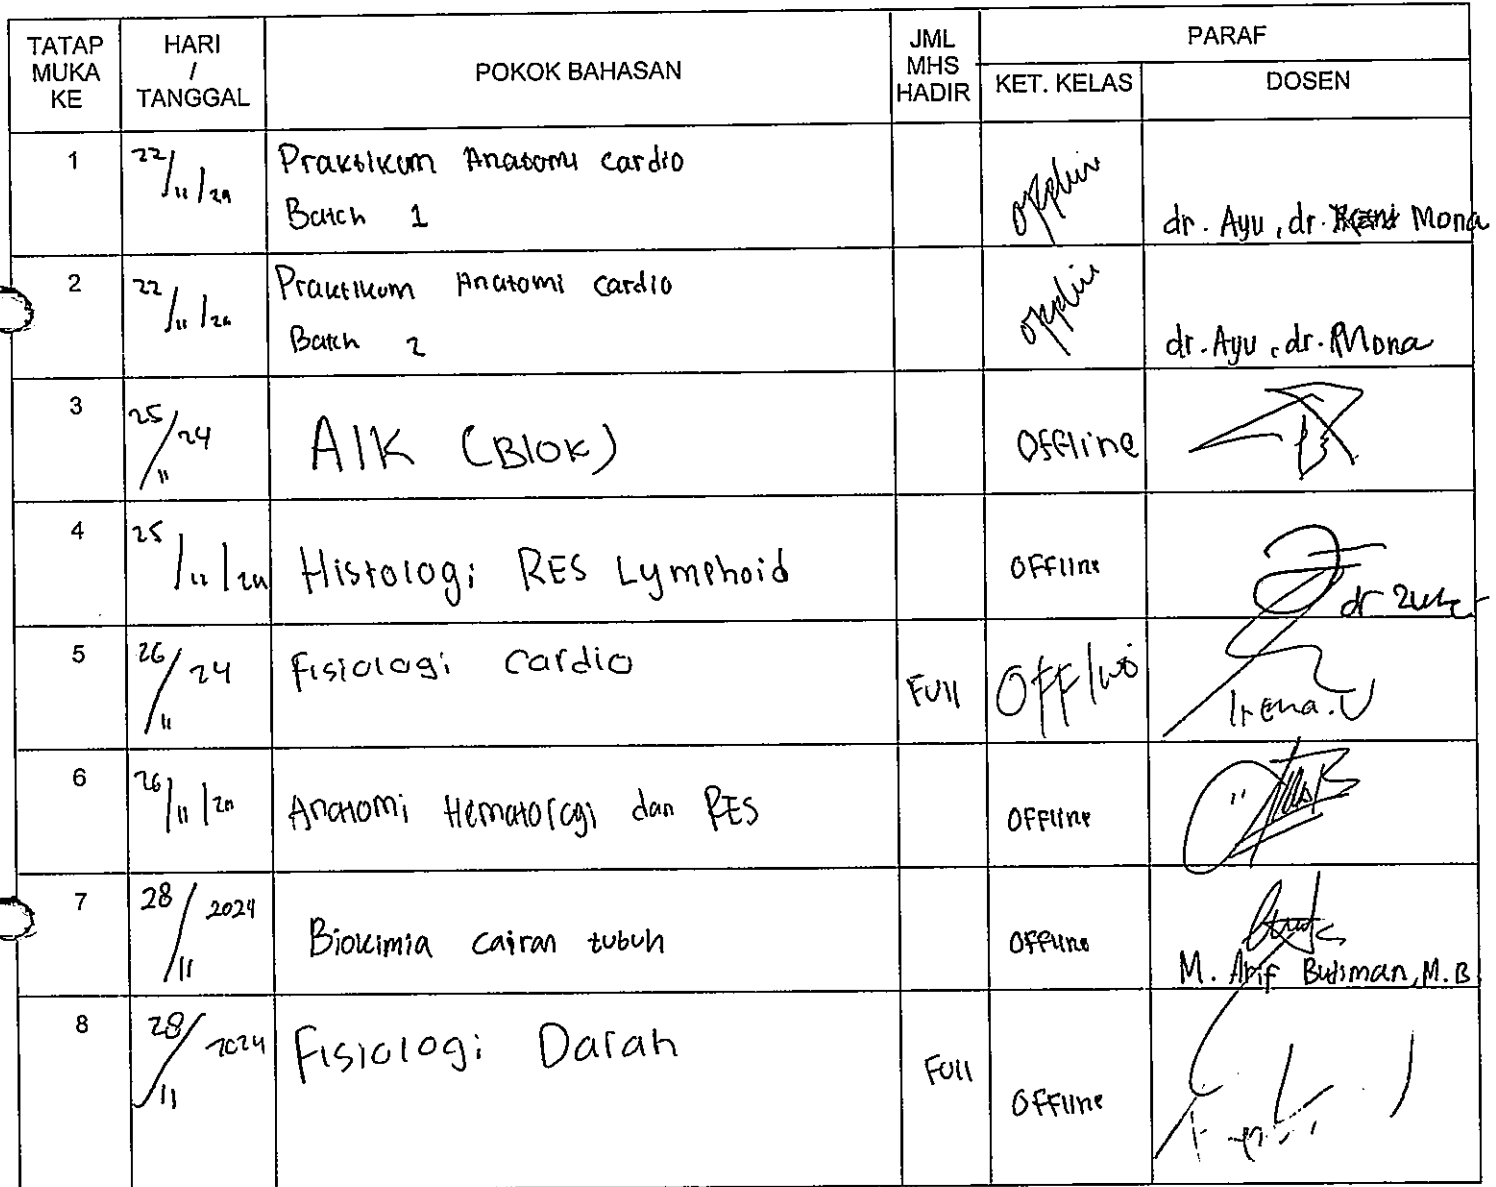 TATAP MUKA KE
HARI / TANGGAL
POKOK BAHASAN
JML MHS HADIR
PARAF
KET. KELAS
DOSEN
1
22/11/24
Praktikum Anatomi cardio
Batch 1
offline
dr. Ayu, dr. Mona
2
22/11/24
Praktikum Anatomi cardio
Batch 2
offline
dr. Ayu, dr. Mona
3
25/11 24
AIK (Blok)
Offline
4
25/11/24
Histologi RES Lymphoid
Offline
dr
5
26/11 24
Fisiologi Cardio
Full
Offline
Irena. U
6
26/11/24
Anatomi Hematologi dan RES
Offline
7
28/11 2024
Biokimia cairan tubuh
Offline
M. Arif Budiman, M.B
8
28/11 2024
Fisiologi Darah
Full
Offline